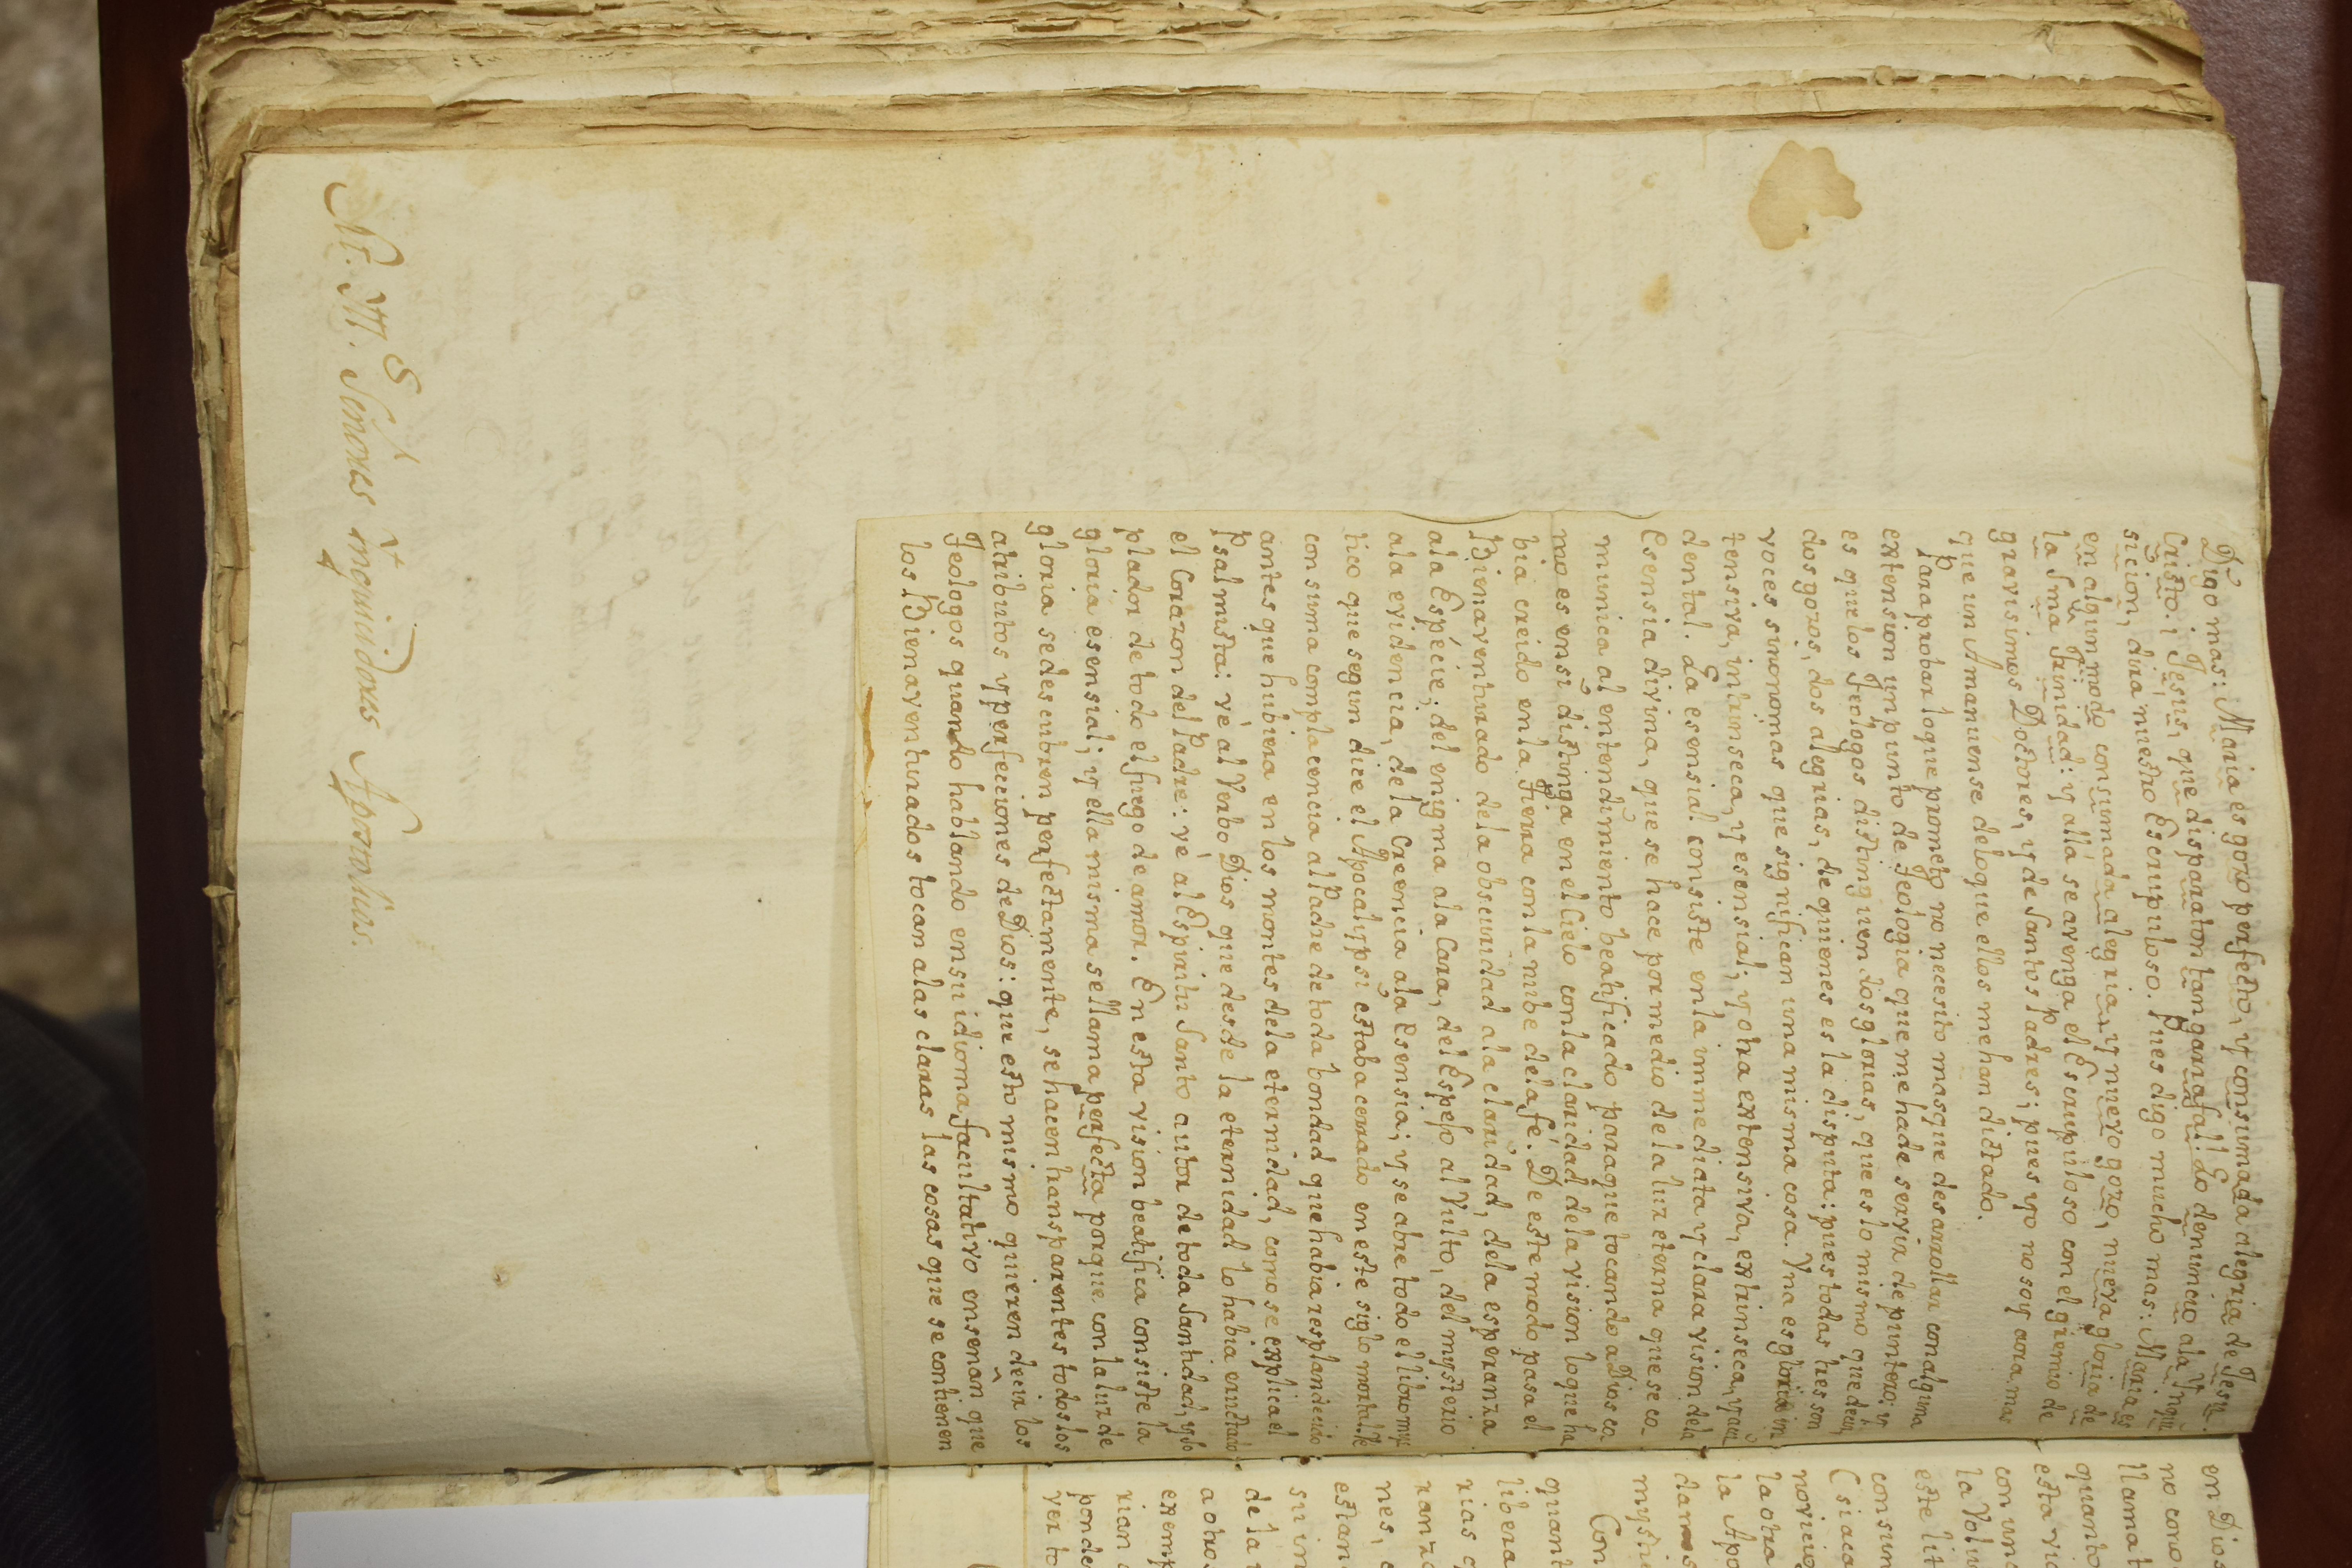 Digo mas: Maria es gozo perfecto, y consumada alegria de Jesu-
Cristo. ¡ Jesus, que disparaton tan garrafal! Lo denuncio ala Ynqui-
sicion, dira nuestro Escrupuloso. Pues digo mucho mas: Maria es
en algun modo consumada alegria, y nuevo gozo, nueva gloria de
la Sma Trinidad: y allá se avenga el Escrupuloso con el gremio de
gravisimos Doctores, y de Santos Padres; pues yo no soy aora mas
que un Amanuense de lo que ellos me han dictado.
Para probar lo que prometo no necesito mas que desarrollar con alguna
extension un punto de Teologia que me ha de servir de puntero: y
es que los Teologos distinguen dos glorias, que es lo mismo que decir,
dos gozos, dos alegrias, de quienes es la disputa: pues todas tres son
voces sinonomas que significan una misma cosa. Yna es gloria in
tensiva, intrinseca, y esensial; y otra extensiva, extrinseca, y acci
dental. La esensial consiste en la immediata y clara vision dela
Esensia divina, que se hace por medio de la luz eterna que se co-
munica al entendimiento beatificado para que tocando a Dios co
mo es en si distinga en el Cielo con la claridad dela vision lo que ha
bia creido en la Tierra con la nube dela fé. De este modo pasa el
Bienaventurado dela obscuridad ala claridad, dela esperanza
ala Espécie; del enigma ala Cara, del Espejo al Vulto, del mysterio
ala evidencia, dela Creencia ala Esensia; y se abre todo el libro mys
tico que segun dice el Apocalypsi estaba cerrado en este siglo mortal. Ve
con suma complacencia al Padre de toda bondad que habia resplandecido
antes que hubiera en los montes dela eternidad, como se explica el
Psalmista: vé al Verbo Dios que desde la eternidad lo habia eructado
el Corazon del Padre: vé al Espiritu Santo autor de toda Santidad, y so
plador de todo el fuego de amor. En esta vision beatifica consiste la
gloria esensial; y ella misma se llama perfecta porque con la luz de
gloria se descubren perfectamente, se hacen transparentes todos los
atributos y perfecciones de Dios: que esto mismo quieren decir los
Teologos quando hablando en su idioma facultativo enseñan que
los Bienaventurados tocan alas claras las cosas que se contienen
Señores inquicidores Apostolicos.
en Dio
no cono
llamat
quanto
esta vic
con un
la Volu
este lit
consum
Csiaca
novicio
la otra
la Apo
damos
myste
Con
quant
libera
rias
ranza
nes,
estan
su in
dela
a otro
exemp
rian
ponde
ver to